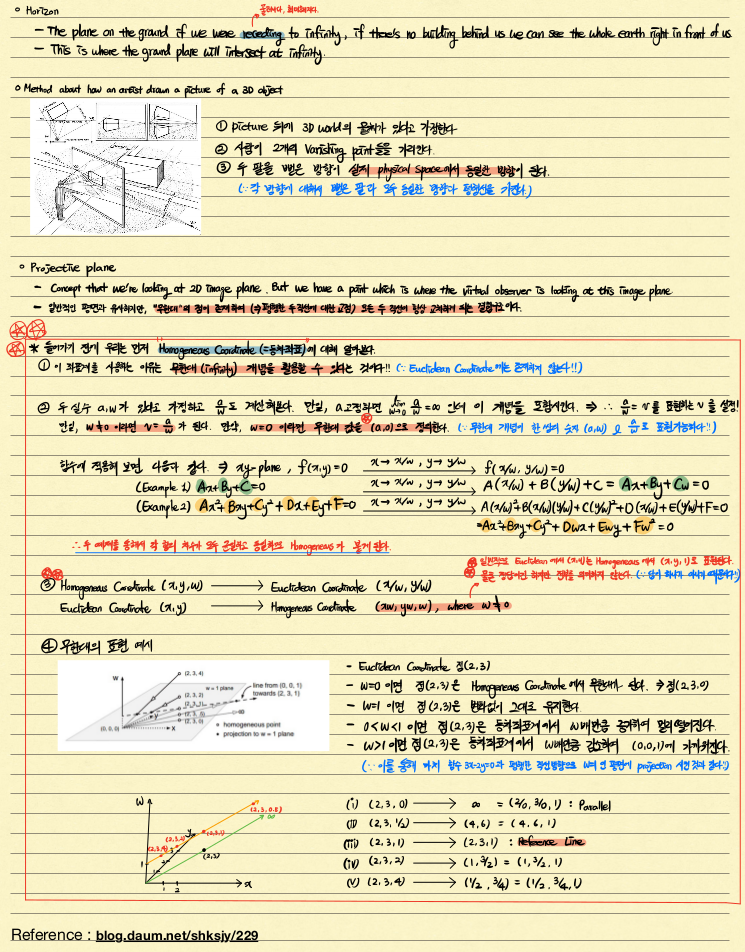 Horizon
물러나다, 희미해지다.
- The plane on the ground if we were receding to infinity, if there's no building behind us we can see the whole earth right in front of us
- This is where the ground plane will intersect at infinity.
Method about how an artist drawn a picture of a 3D object
① picture 뒤에 3D world의 물체가 있다고 가정한다
② 사람이 2개의 Vanishing point들을 가리킨다.
③ 두 팔을 뻗은 방향이 실제 physical space에서 동일한 방향이 된다.
(∵ 각 방향에 대해서 뻗은 팔과 모두 동일한 방향과 평행선을 가진다.)
Projective plane
- Concept that we're looking at 2D image plane. But we have a point which is where the virtual observer is looking at this image plane
- 일반적인 평면과 유사하지만, "무한대"의 점이 존재하여 (⇒ 평행한 두 직선에 대한 교점) 모든 두 직선이 항상 교차하게 되는 이다.
* 들어가기 전에 우리는 먼저 Homogeneous Coordinate (=동차좌표)에 대해 알아본다.
① 이 좌표계를 사용하는 이유는 무한대 (infinity) 개념을 활용할 수 있다는 것이다!! (∵ Euclidean Coordinate에는 존재하지 않는다!!)
② 두 실수 a,w가 있다고 가정하고 a/w도 계산해본다. 만일, a고정되면 lim w→0 a/w = ∞ 인데 이 개념을 포함시킨다. ⇒ ∴ a/w = v를 표현하는 v를 설정!
만일, w≠0 이라면 v = a/w가 된다. 만약, w=0 이라면 무한대 값을 (a,0)으로 정의한다. (∵ 무한대 개념이 한 쌍의 숫자 (a,w) a/w로 표현가능하다!!)
함수에 적용해 보면 다음과 같다. ⇒ xy-plane, f(x,y)=0 x→x/w, y→y/w f(x/w, y/w)=0
(Example 1) Ax+By+C=0 x→x/w, y→y/w A(x/w)+B(y/w)+C = Ax+By+Cw=0
(Example 2) Ax²+Bxy+Cy²+Dx+Ey+F=0 x→x/w, y→y/w A(x/w)²+B(x/w)(y/w)+C(y/w)²+D(x/w)+E(y/w)+F=0
=Ax²+Bxy+Cy²+Dwx+Ewy+Fw²=0
∴ 두 예제를 통해서 각 항의 차수가 모두 동일하고 Homogeneous가 게 된다.
일반적으로 Euclidean 에서 (x,y)는 Homogeneous 에서 (x,y,1)로 표현한다.
③ Homogeneous Coordinate (x,y,w) → Euclidean Coordinate (x/w, y/w)
Euclidean Coordinate (x,y) → Homogeneous Coordinate (xw, yw, w), where w≠0
④ 무한대의 표현 예시
w
(2, 3, 4)
(2, 3, 2)
(2, 3, 1)
(2, 3, .5)
(2, 3, 0)
(0, 0, 0)
w = 1 plane
line from (0, 0, 1)
towards (2, 3, 1)
∞
Y
X
homogeneous point
projection to w = 1 plane
- Euclidean Coordinate 점(2,3)
- w=0 이면 점(2,3)은 Homogeneous Coordinate에서 무한대가 된다. ⇒ 점(2,3,0)
- w=1이면 점(2,3)은 변화없이 그대로 유지한다.
- 0<w<1 이면 점(2,3)은 동차좌표계에서 w배만큼 증가하여 멀어진다.
- w>1이면 점(2,3)은 동차좌표계에서 w배만큼 감소하여 (0,0,1)에 가까워진다.
(∵ 이를 통해 마치 함수 3x-2y=0과 평행한 직선방향으로 w=1 인 평면에 projection 시킨 것과 같다!!)
w
(2,3,0.5)
∞
(2,3,1)
(2,3,2)
(2,3,4)
(2,3)
y
x
1
1 2
(i) (2,3,0) → ∞ = (2/0, 3/0, 1) : Parallel
(ii) (2,3,1/2) → (4,6) = (4,6,1)
(iii) (2,3,1) → (2,3,1) : Reference Line
(iv) (2,3,2) → (1,3/2) = (1,3/2,1)
(v) (2,3,4) → (1/2, 3/4) = (1/2, 3/4, 1)
Reference : blog.daum.net/shksjy/229